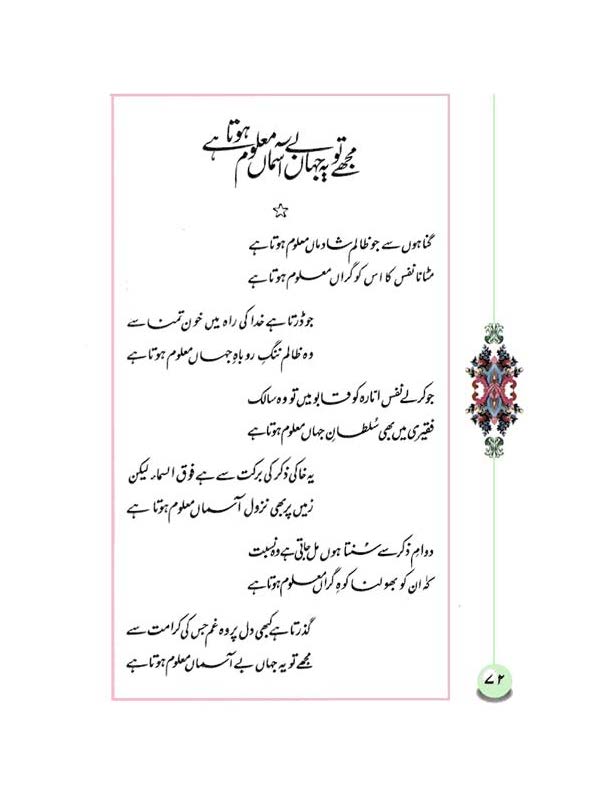 مجھے تو یہ جہاں بے آسماں معلوم ہوتا ہے
گناہوں سے جو ظالم شادماں معلوم ہوتا ہے
مٹانا نفس کا اس کو گراں معلوم ہوتا ہے
جو ڈرتا ہے خدا کی راہ میں خونِ تمنا سے
وہ ظالم ننگِ روباہِ جہاں معلوم ہوتا ہے
جو کرلے نفس امارہ کو قابو میں تو وہ سالک
فقیری میں بھی سُلطانِ جہاں معلوم ہوتا ہے
یہ خاکی ذکر کی برکت سے ہے فوق السماء لیکن
زمیں پر بھی نزول آسماں معلوم ہوتا ہے
دوامِ ذکر سے سُنتا ہوں مل جاتی ہے وہ نسبت
کہ ان کو بھولنا کوہِ گراں معلوم ہوتا ہے
گذرتا ہے کبھی دل پر وہ غم جس کی کرامت سے
مجھے تو یہ جہاں بے آسماں معلوم ہوتا ہے
۷۲